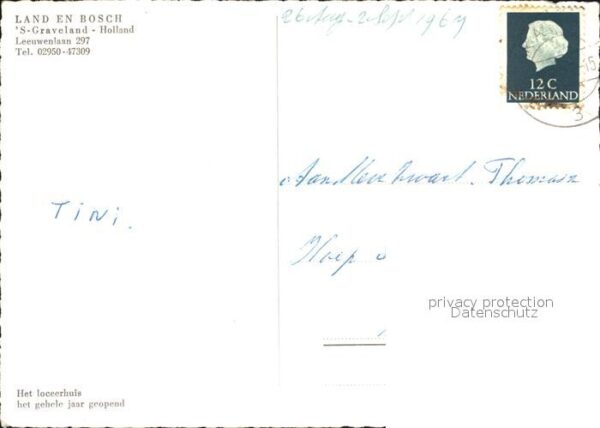 LAND EN BOSCH
'S-Graveland - Holland
Leeuwenlaan 297
Tel. 02950-47309
26 Aug - 2 Sept 1969
12 C
NEDERLAND
15
3
Aan Thomson
TiNi.
privacy protection
Datenschutz
Het loceerhuis
het gehele jaar geopend